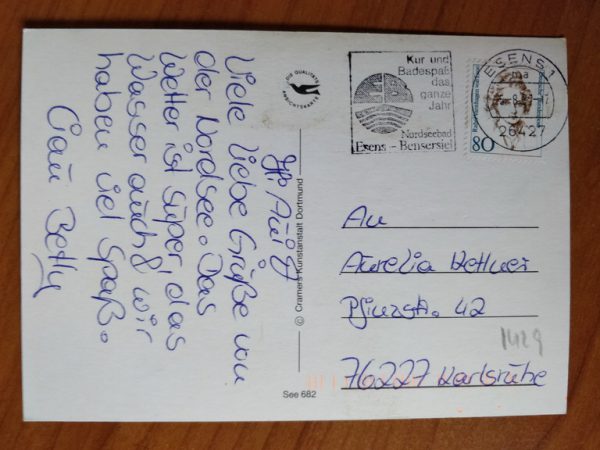 Hi Aui!
Viele liebe Grüße von
der Nordsee. Das
Wetter ist super, das
Wasser auch & wir
haben viel Spaß.
Ciau Betty
DIE QUALITÄTS
ANSICHTSKARTE
© Cramers Kunstanstalt Dortmund
See 682
Kur und
Badespaß
das
ganze
Jahr
Nordseebad
Esens - Bensersiel
ESENS 1
ma
26427
80
An
Aurelia
Pfinzstr. 42
76227 Karlsruhe
1429